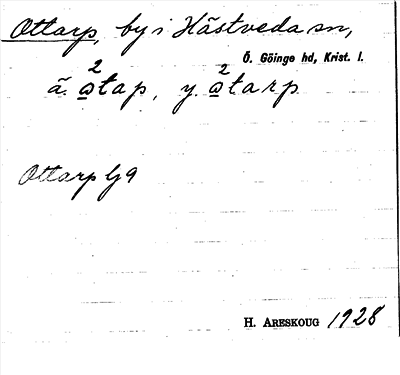 Ottarp, by i Hästveda sn,
Ö. Göinge hd, Krist. l.
ä. ²a̲tap, y. ²a̲tarp
Ottarp G9
H. ARESKOUG 1928